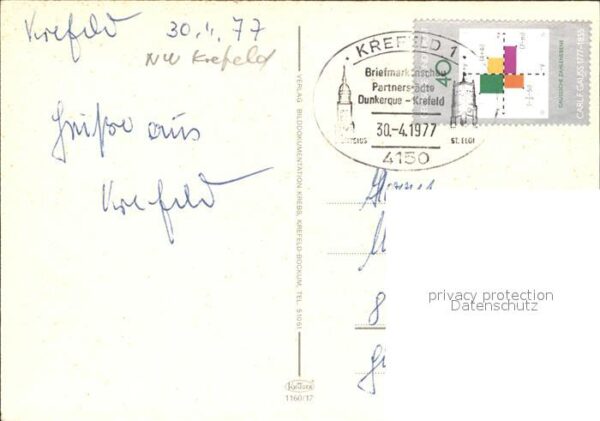 Krefeld 30.4.77
NW Krefeld
Grüße aus
Krefeld
VERLAG BILDDOKUMENTATION KREBS, KREFELD-BOCKUM, TEL. 51061
1160/17
KREFELD 1
Briefmarkenschau
Partnerstädte
Dunkerque - Krefeld
30.-4.1977
ST. ELOI
4150
40
CARL F. GAUSS 1777-1855
GAUSSSCHE ZAHLENEBENE
8
privacy protection
Datenschutz